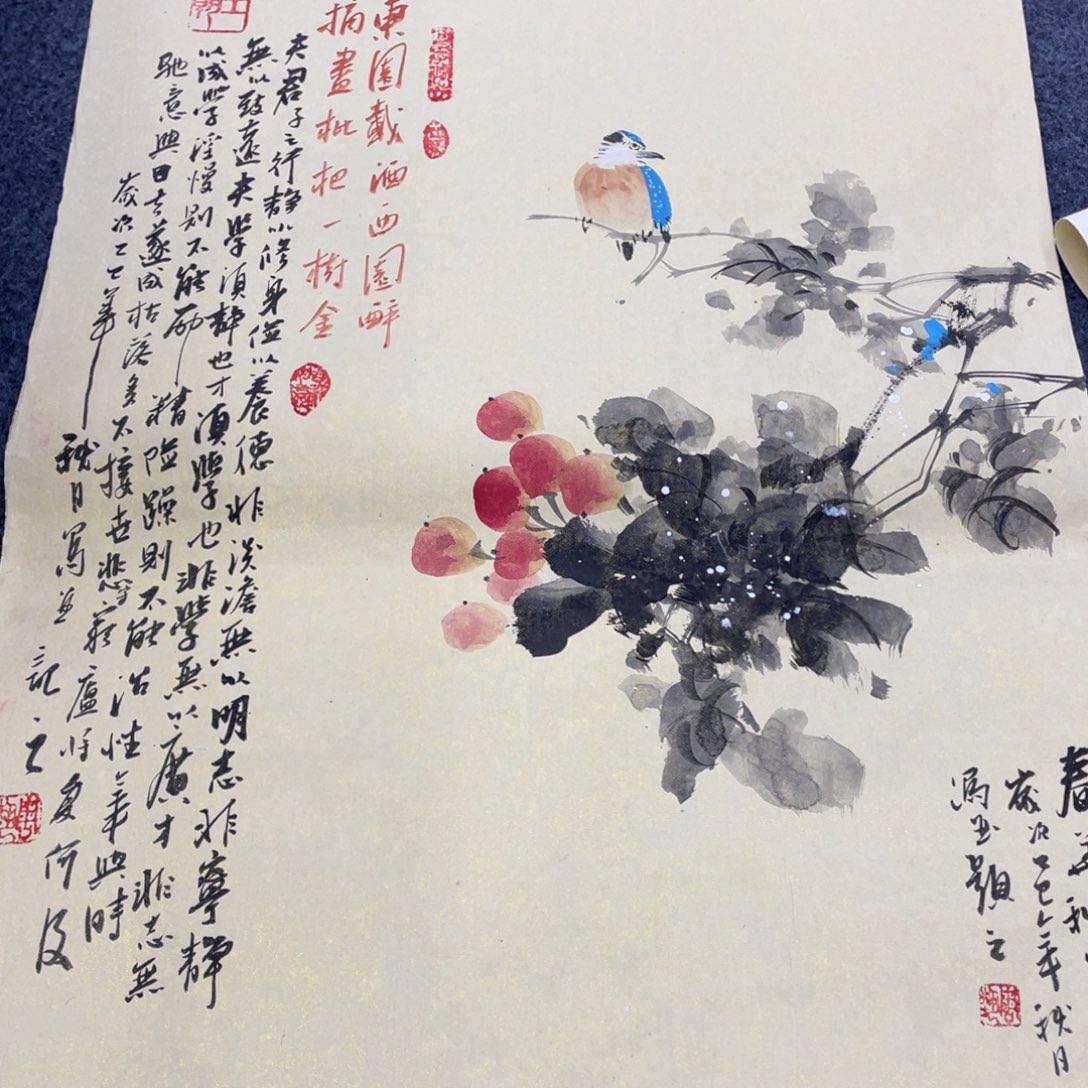 春華秋
歲次乙巳年秋月
寫並題之
東園載酒西園醉
摘盡枇杷一樹金
夫君子之行靜以修身儉以養德非淡澹無以明志非寧靜
無以致遠夫學須靜也才須學也非學無以廣才非志無
以成學淫慢則不能勵精險躁則不能治性年與時
馳意與日去遂成枯落多不接世悲守窮廬將復何及
歲次乙巳年秋月寫並記之